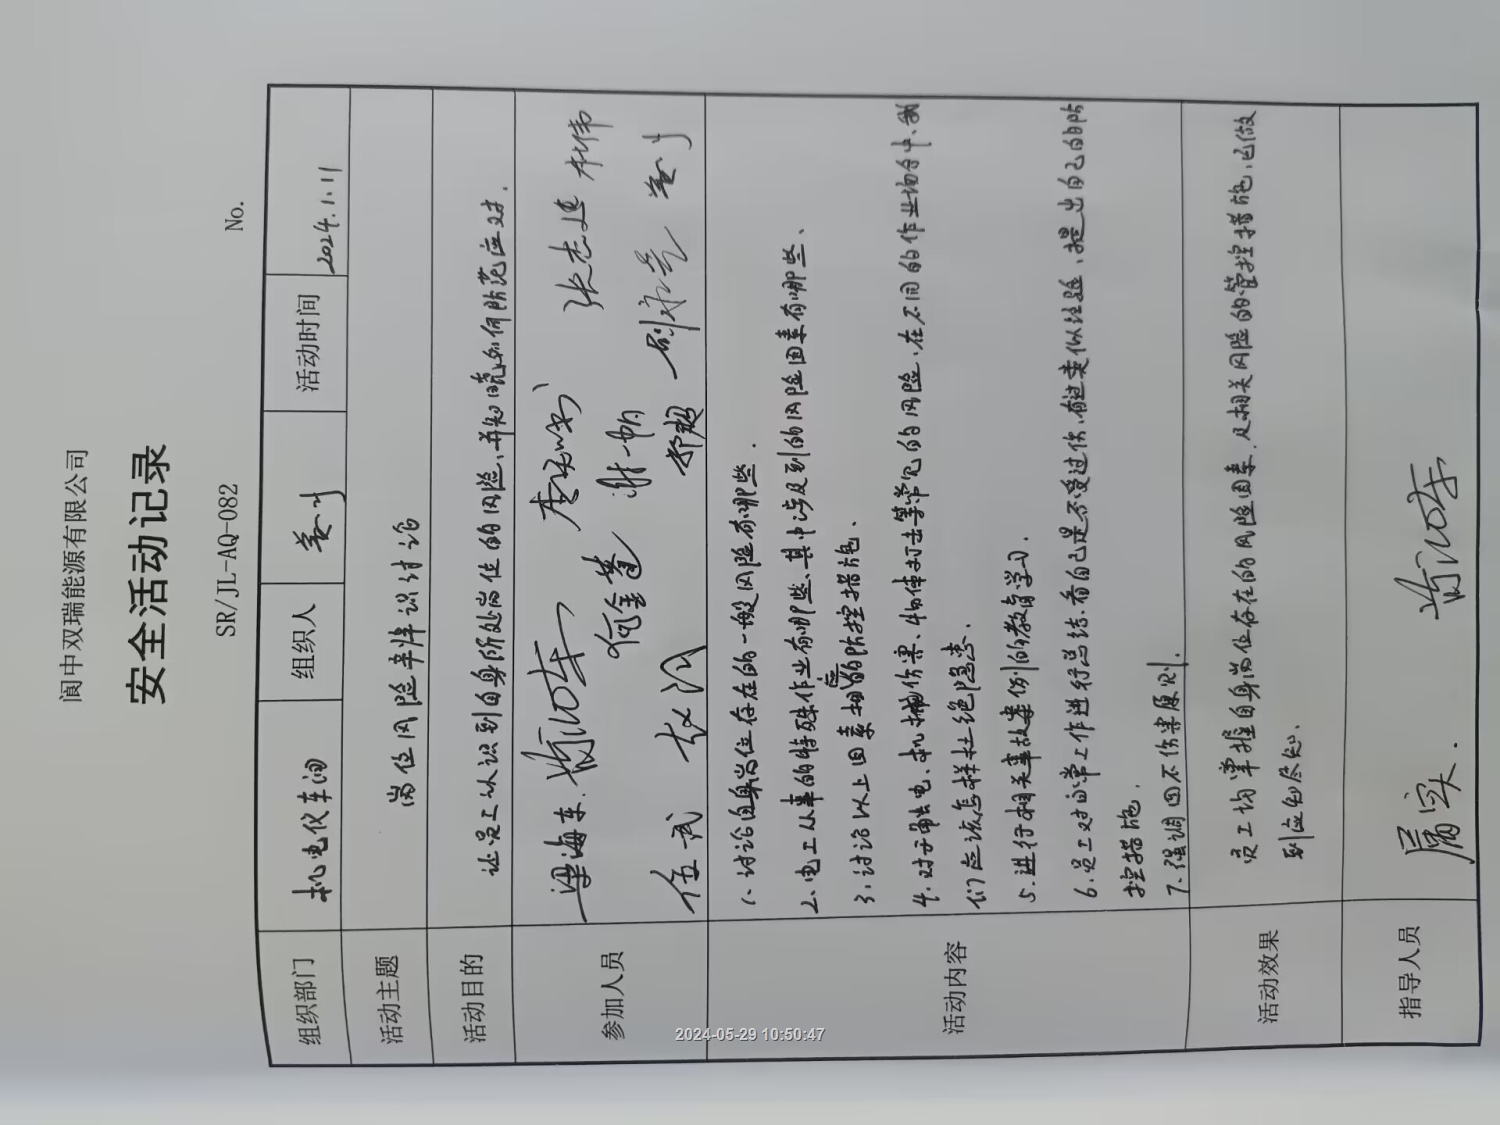 阆中双瑞能源有限公司
安全活动记录
SR/JL-AQ-082
No.
组织部门 机电仪车间 组织人 活动时间 2024.1.11
活动主题 岗位风险辛辨识讨论
活动目的 让员工认识到自身所处岗位的风险、并知晓如何防范应对.
参加人员 梁海东. 张志进 林伟
何金莲 谢一帆
伍武
活动内容
1、讨论自身岗位存在的一般风险有哪些.
2、电工从事的特殊作业有哪些、其中涉及到的风险因素有哪些、
3、讨论以上因素相应的防控措施.
4、对于触电、机械伤害、物体打击等常见的风险、在不同的作业场合中、我
们应该怎样杜绝隐患.
5、进行相关事故案例的教育学习.
6、员工对日常工作进行总结、看自己是不受过伤、有过类似经验、提出自己的防
控措施.
7、强调四不伤害原则.
活动效果 员工均掌握自身岗位存在的风险因素、及相关风险的管控措施、已做
到应知尽知.
指导人员
2024-05-29 10:50:47